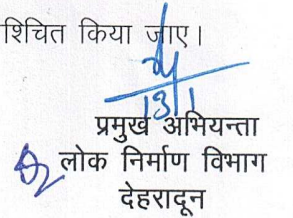 शिचित किया जाए।
प्रमुख अभियन्ता
लोक निर्माण विभाग
देहरादून